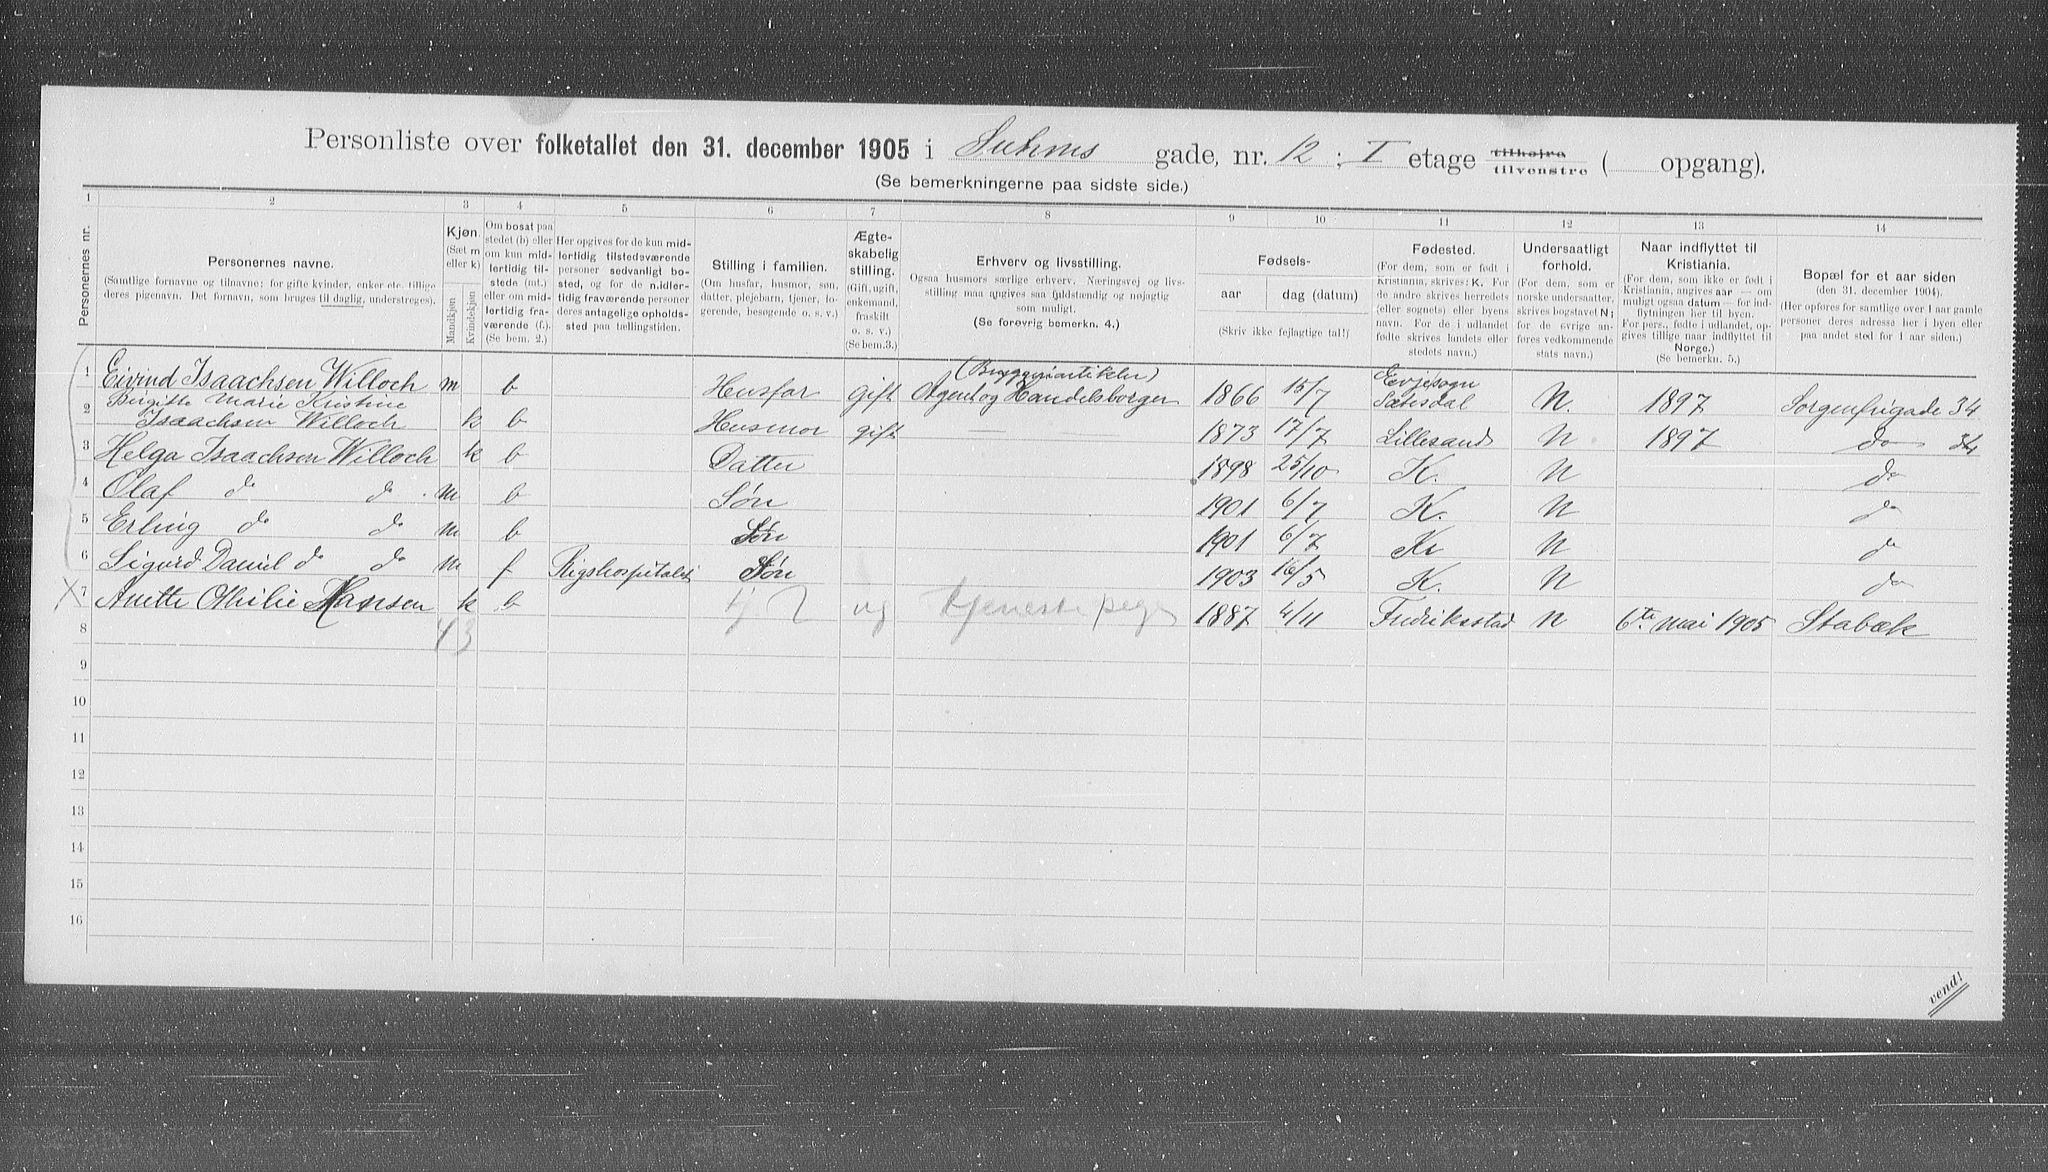 Personliste over folketallet den 31. december 1905 i Suhms gade, nr. 12 ; I etage tilhøjre tilvenstre ( opgang).
(Se bemerkningerne paa sidste side.)
1 2 3 4 5 6 7 8 9 10 11 12 13 14
Personernes nr.
Personernes navne.
(Samtlige fornavne og tilnavne; for gifte kvinder, enker etc. tillige deres pigenavn. Det fornavn, som bruges til daglig, understreges).
Kjøn.
(Sæt m eller k)
Mandkjøn
Kvindekjøn
Om bosat paa stedet (b) eller om kun midlertidig tilstede (mt.) eller om midlertidig fraværende (f.). (Se bem. 2.)
Her opgives for de kun midlertidig tilstedeværende personer sedvanligt bosted, og for de midlertidig fraværende personer deres antagelige opholdssted paa tællingstiden.
Stilling i familien.
(Om husfar, husmor, søn, datter, plejebarn, tjener, logerende, besøgende o. s. v.)
Ægteskabelig stilling.
(Gift, ugift, enkemand, fraskilt o. s. v.)
(Se bem.3.)
Erhverv og livsstilling.
Ogsaa husmors særlige erhverv. Næringsvej og livsstilling maa angives saa fuldstændig og nøjagtig som muligt.
(Se forøvrig bemerkn. 4.)
Fødsels-
aar
dag (datum)
(Skriv ikke fejlagtige tal!)
Fødested.
(For dem, som er født i Kristiania, skrives: K. For de andre skrives herredets (eller sognets) eller byens navn. For de i udlandet fødte skrives landets eller stedets navn.)
Undersaatligt forhold.
(For dem, som er norske undersaatter, skrives bogstavet N; for de øvrige anføres vedkommende stats navn.)
Naar indflyttet til Kristiania.
(For dem, som ikke er født i Kristiania, angives aar — om muligt ogsaa datum — for indflytningen her til byen. For pers., fødte i udlandet, opgives tillige naar indflyttet til Norge.)
(Se bemerkn. 5.)
Bopæl for et aar siden
(den 31. december 1904).
(Her opføres for samtlige over 1 aar gamle personer deres adresse her i byen eller paa andet sted for 1 aar siden.)
1 Eivind Isaachsen Willoch m b Husfar gift (Bryggeriartikler) Agent og Handelsborger 1866 15/7 Evjesogn Sætesdal N. 1897 Sorgenfrigade 34
2 Birgitte Marie Kristine
Isaachsen Willoch k b Husmor gift — 1873 17/7 Lillesand N 1897 do 34
3 Helga Isaachsen Willoch k b Datter 1898 25/10 K. N do
4 Olaf do do m b Søn 1901 6/7 K. N do
5 Erling do do m b Søn 1901 6/7 Kr N do
6 Sigurd Daniel do do m f Rigshospitalet Søn 1903 16/5 K. N do
X 7 Anette Othilie Hansen k b tj ug tjenestepige 1887 4/11 Fredriksstad N 6te mai 1905 Stabæk
8
43
9
10
11
12
13
14
15
16
vend!